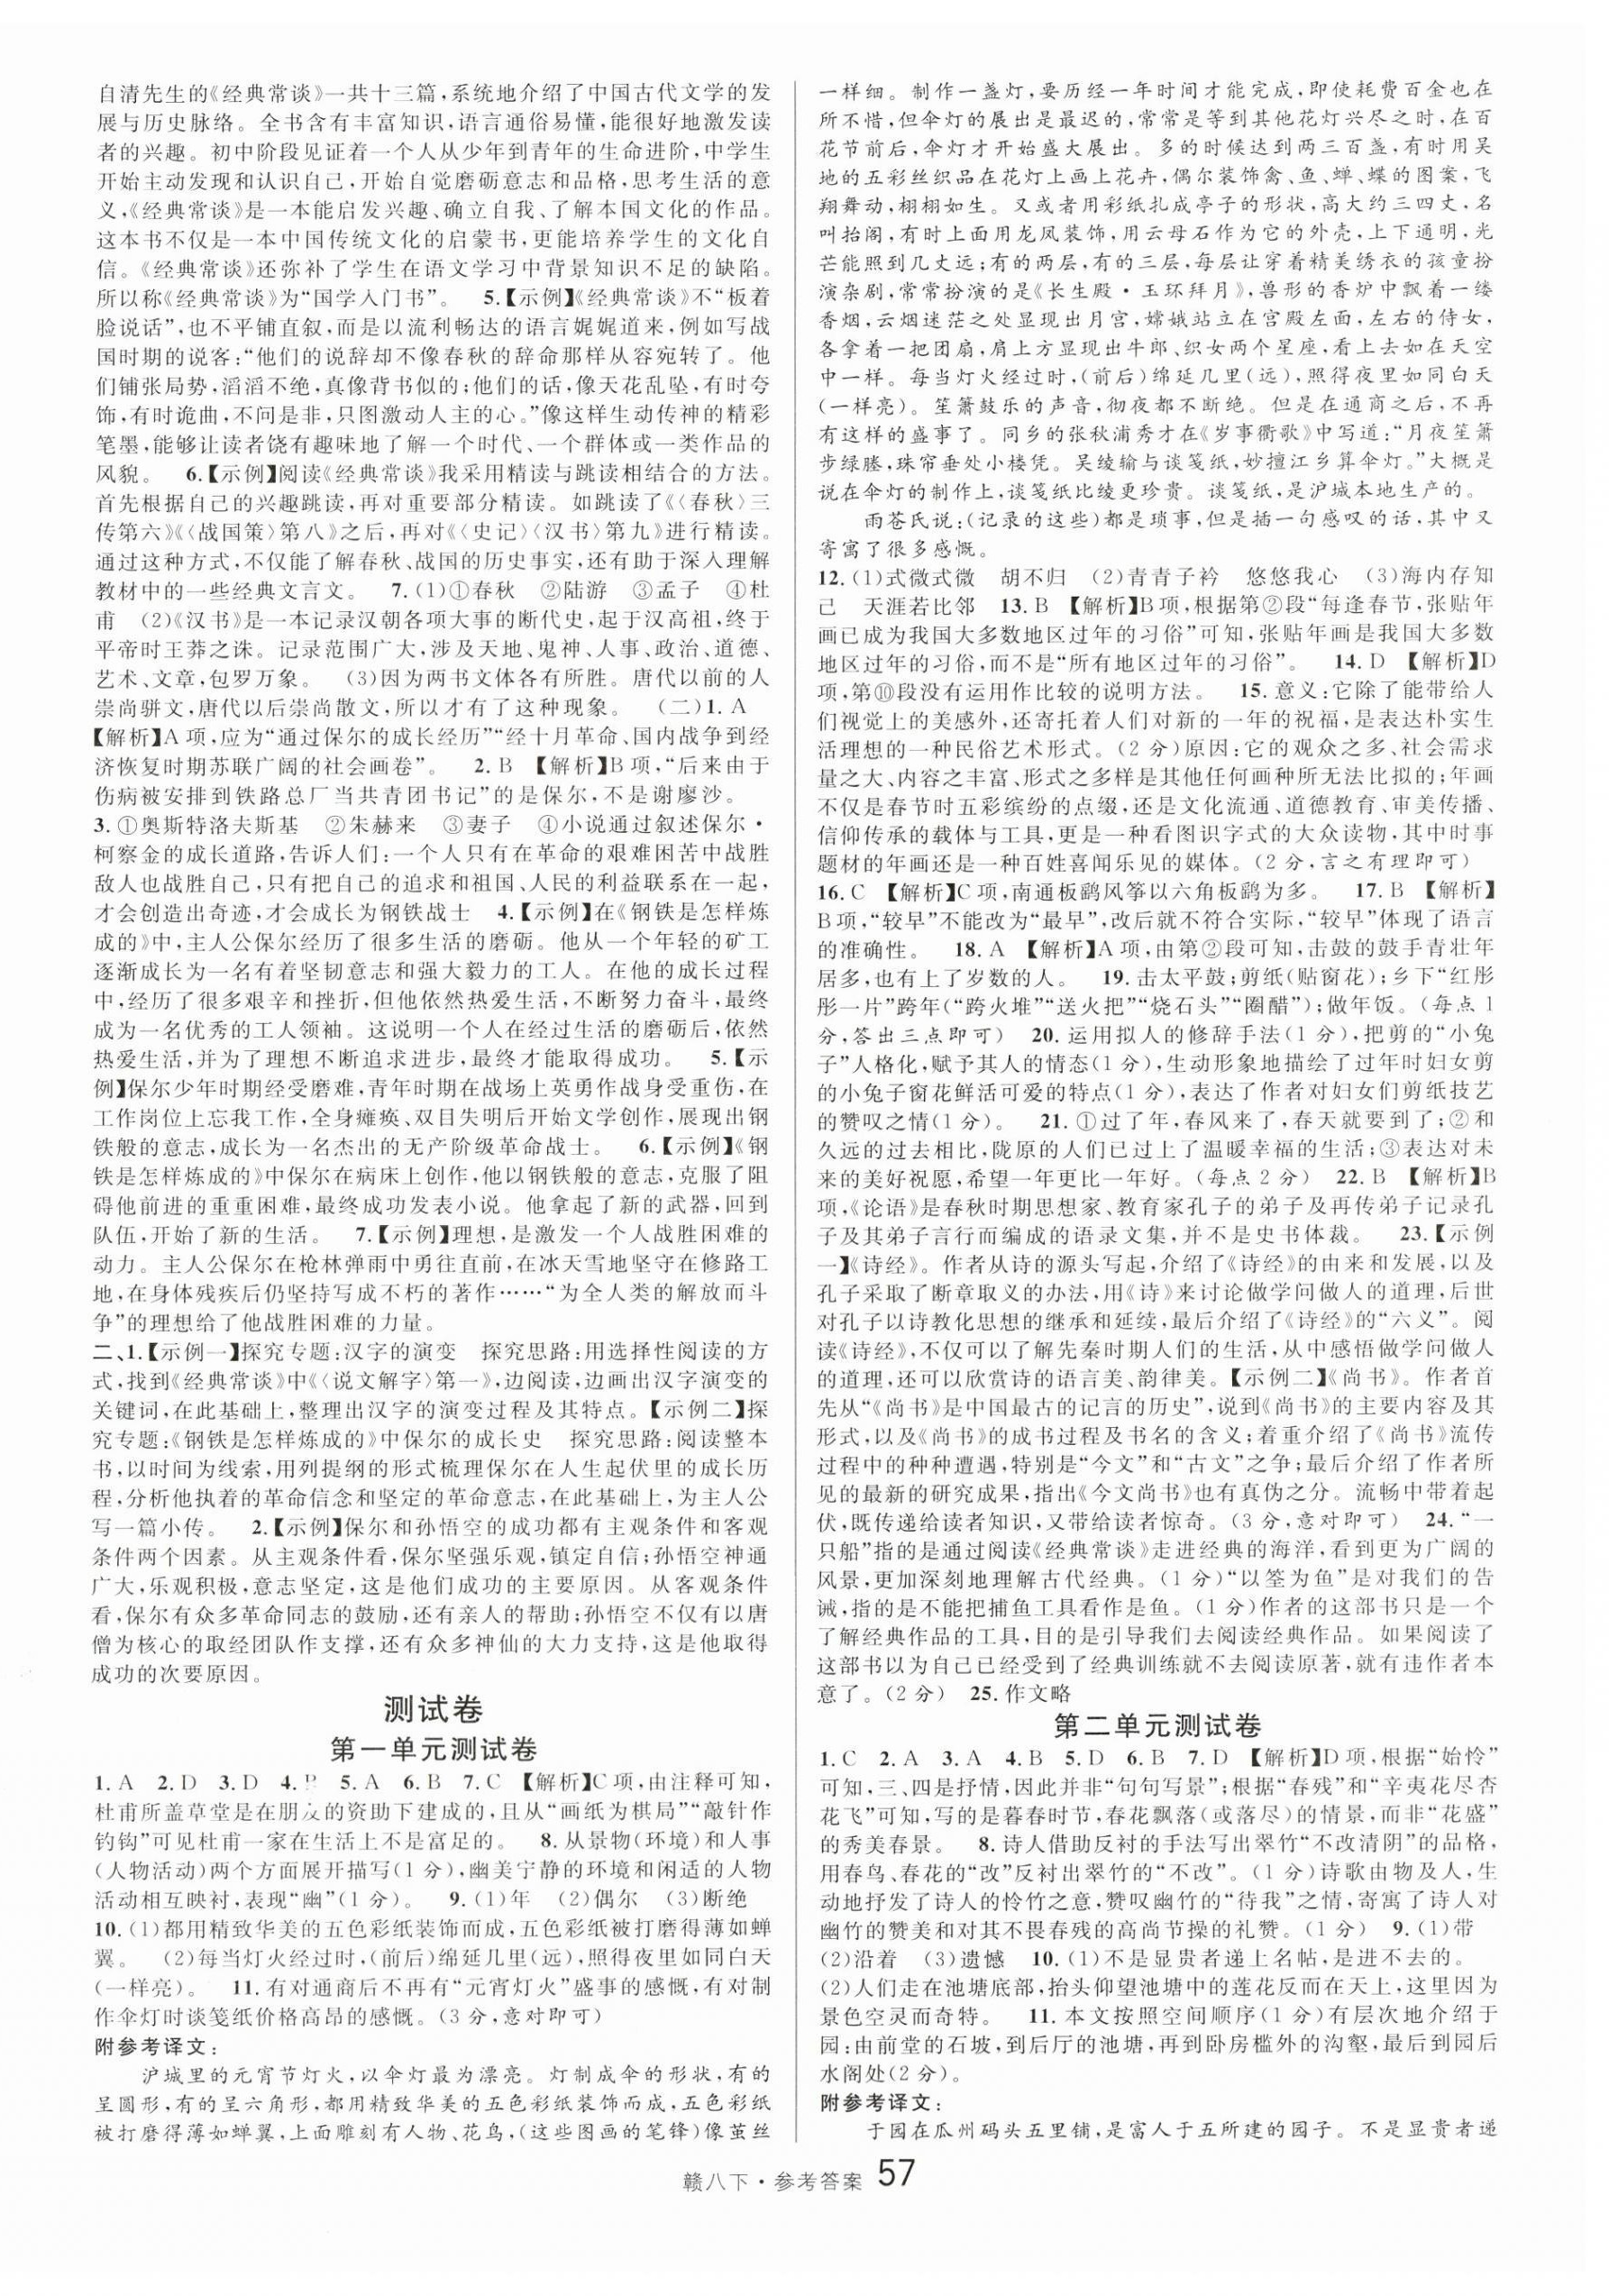 自清先生的《经典常谈》一共十三篇,系统地介绍了中国古代文学的发
展与历史脉络。全书含有丰富知识,语言通俗易懂,能很好地激发读
者的兴趣。初中阶段见证着一个人从少年到青年的生命进阶,中学生
开始主动发现和认识自己,开始自觉磨砺意志和品格,思考生活的意
义,《经典常谈》是一本能启发兴趣、确立自我、了解本国文化的作品。
这本书不仅是一本中国传统文化的启蒙书,更能培养学生的文化自
信。《经典常谈》还弥补了学生在语文学习中背景知识不足的缺陷。
所以称《经典常谈》为“国学入门书”。 5.【示例】《经典常谈》不“板着
脸说话”,也不平铺直叙,而是以流利畅达的语言娓娓道来,例如写战
国时期的说客:“他们的说辞却不像春秋的辞命那样从容宛转了。他
们铺张局势,滔滔不绝,真像背书似的;他们的话,像天花乱坠,有时夸
饰,有时诡曲,不问是非,只图激动人主的心。”像这样生动传神的精彩
笔墨,能够让读者饶有趣味地了解一个时代、一个群体或一类作品的
风貌。 6.【示例】阅读《经典常谈》我采用精读与跳读相结合的方法。
首先根据自己的兴趣跳读,再对重要部分精读。如跳读了《〈春秋〉三
传第六》《〈战国策〉第八》之后,再对《〈史记〉〈汉书〉第九》进行精读。
通过这种方式,不仅能了解春秋、战国的历史事实,还有助于深入理解
教材中的一些经典文言文。 7.(1)①春秋 ②陆游 ③孟子 ④杜
甫 (2)《汉书》是一本记录汉朝各项大事的断代史,起于汉高祖,终于
平帝时王莽之诛。记录范围广大,涉及天地、鬼神、人事、政治、道德、
艺术、文章,包罗万象。 (3)因为两书文体各有所胜。唐代以前的人
崇尚骈文,唐代以后崇尚散文,所以才有了这种现象。 (二)1. A
【解析】A 项,应为“通过保尔的成长经历”“经十月革命、国内战争到经
济恢复时期苏联广阔的社会画卷”。 2. B 【解析】B项,“后来由于
伤病被安排到铁路总厂当共青团书记”的是保尔,不是谢廖沙。
3. ①奥斯特洛夫斯基 ②朱赫来 ③妻子 ④小说通过叙述保尔·
柯察金的成长道路,告诉人们:一个人只有在革命的艰难困苦中战胜
敌人也战胜自己,只有把自己的追求和祖国、人民的利益联系在一起,
才会创造出奇迹,才会成长为钢铁战士 4.【示例】在《钢铁是怎样炼
成的》中,主人公保尔经历了很多生活的磨砺。他从一个年轻的矿工
逐渐成长为一名有着坚韧意志和强大毅力的工人。在他的成长过程
中,经历了很多艰辛和挫折,但他依然热爱生活,不断努力奋斗,最终
成为一名优秀的工人领袖。这说明一个人在经过生活的磨砺后,依然
热爱生活,并为了理想不断追求进步,最终才能取得成功。 5.【示
例】保尔少年时期经受磨难,青年时期在战场上英勇作战身受重伤,在
工作岗位上忘我工作,全身瘫痪、双目失明后开始文学创作,展现出钢
铁般的意志,成长为一名杰出的无产阶级革命战士。 6.【示例】《钢
铁是怎样炼成的》中保尔在病床上创作,他以钢铁般的意志,克服了阻
碍他前进的重重困难,最终成功发表小说。他拿起了新的武器,回到
队伍,开始了新的生活。 7.【示例】理想,是激发一个人战胜困难的
动力。主人公保尔在枪林弹雨中勇往直前,在冰天雪地坚守在修路工
地,在身体残疾后仍坚持写成不朽的著作……“为全人类的解放而斗
争”的理想给了他战胜困难的力量。
二、1.【示例一】探究专题:汉字的演变 探究思路:用选择性阅读的方
式,找到《经典常谈》中《〈说文解字〉第一》,边阅读,边画出汉字演变的
关键词,在此基础上,整理出汉字的演变过程及其特点。【示例二】探
究专题:《钢铁是怎样炼成的》中保尔的成长史 探究思路:阅读整本
书,以时间为线索,用列提纲的形式梳理保尔在人生起伏里的成长历
程,分析他执着的革命信念和坚定的革命意志,在此基础上,为主人公
写一篇小传。 2.【示例】保尔和孙悟空的成功都有主观条件和客观
条件两个因素。从主观条件看,保尔坚强乐观,镇定自信;孙悟空神通
广大,乐观积极,意志坚定,这是他们成功的主要原因。从客观条件
看,保尔有众多革命同志的鼓励,还有亲人的帮助;孙悟空不仅有以唐
僧为核心的取经团队作支撑,还有众多神仙的大力支持,这是他取得
成功的次要原因。
测试卷
第一单元测试卷
1. A 2. D 3. D 4. 5. A 6. B 7. C 【解析】C项,由注释可知,
杜甫所盖草堂是在朋友的资助下建成的,且从“画纸为棋局”“敲针作
钓钩”可见杜甫一家在生活上不是富足的。 8. 从景物(环境)和人事
(人物活动)两个方面展开描写(1 分),幽美宁静的环境和闲适的人物
活动相互映衬,表现“幽”(1 分)。 9. (1)年 (2)偶尔 (3)断绝
10. (1)都用精致华美的五色彩纸装饰而成,五色彩纸被打磨得薄如蝉
翼。 (2)每当灯火经过时,(前后)绵延几里(远),照得夜里如同白天
(一样亮)。 11. 有对通商后不再有“元宵灯火”盛事的感慨,有对制
作伞灯时谈笺纸价格高昂的感慨。(3 分,意对即可)
附参考译文:
沪城里的元宵节灯火,以伞灯最为漂亮。灯制成伞的形状,有的
呈圆形,有的呈六角形,都用精致华美的五色彩纸装饰而成,五色彩纸
被打磨得薄如蝉翼,上面雕刻有人物、花鸟,(这些图画的笔锋)像茧丝
一样细。制作一盏灯,要历经一年时间才能完成,即使耗费百金也在
所不惜,但伞灯的展出是最迟的,常常是等到其他花灯兴尽之时,在百
花节前后,伞灯才开始盛大展出。多的时候达到两三百盏,有时用吴
地的五彩丝织品在花灯上画上花卉,偶尔装饰禽、鱼、蝉、蝶的图案,飞
翔舞动,栩栩如生。又或者用彩纸扎成亭子的形状,高大约三四丈,名
叫抬阁,有时上面用龙凤装饰,用云母石作为它的外壳,上下通明,光
芒能照到几丈远;有的两层,有的三层,每层让穿着精美绣衣的孩童扮
演杂剧,常常扮演的是《长生殿·玉环拜月》,兽形的香炉中飘着一缕
香烟,云烟迷茫之处显现出月宫,嫦娥站立在宫殿左面,左右的侍女,
各拿着一把团扇,肩上方显现出牛郎、织女两个星座,看上去如在天空
中一样。每当灯火经过时,(前后)绵延几里(远),照得夜里如同白天
(一样亮)。笙箫鼓乐的声音,彻夜都不断绝。但是在通商之后,不再
有这样的盛事了。同乡的张秋浦秀才在《岁事衢歌》中写道:“月夜笙箫
步绿塍,珠帘垂处小楼凭。吴绫输与谈笺纸,妙擅江乡算伞灯。”大概是
说在伞灯的制作上,谈笺纸比绫更珍贵。谈笺纸,是沪城本地生产的。
雨苍氏说:(记录的这些)都是琐事,但是插一句感叹的话,其中又
寄寓了很多感慨。
12. (1)式微式微 胡不归 (2)青青子衿 悠悠我心 (3)海内存知
己 天涯若比邻 13. B 【解析】B项,根据第②段“每逢春节,张贴年
画已成为我国大多数地区过年的习俗”可知,张贴年画是我国大多数
地区过年的习俗,而不是“所有地区过年的习俗”。 14. D 【解析】D
项,第⑩段没有运用作比较的说明方法。 15. 意义:它除了能带给人
们视觉上的美感外,还寄托着人们对新的一年的祝福,是表达朴实生
活理想的一种民俗艺术形式。(2 分)原因:它的观众之多、社会需求
量之大、内容之丰富、形式之多样是其他任何画种所无法比拟的;年画
不仅是春节时五彩缤纷的点缀,还是文化流通、道德教育、审美传播、
信仰传承的载体与工具,更是一种看图识字式的大众读物,其中时事
题材的年画还是一种百姓喜闻乐见的媒体。(2 分,言之有理即可)
16. C 【解析】C项,南通板鹞风筝以六角板鹞为多。 17. B 【解析】
B项,“较早”不能改为“最早”,改后就不符合实际,“较早”体现了语言
的准确性。 18. A 【解析】A 项,由第②段可知,击鼓的鼓手青壮年
居多,也有上了岁数的人。 19. 击太平鼓;剪纸(贴窗花);乡下“红彤
彤一片”跨年(“跨火堆”“送火把”“烧石头”“圈醋”);做年饭。(每点 1
分,答出三点即可) 20. 运用拟人的修辞手法(1 分),把剪的“小兔
子”人格化,赋予其人的情态(1 分),生动形象地描绘了过年时妇女剪
的小兔子窗花鲜活可爱的特点(1 分),表达了作者对妇女们剪纸技艺
的赞叹之情(1 分)。 21. ①过了年,春风来了,春天就要到了;②和
久远的过去相比,陇原的人们已过上了温暖幸福的生活;③表达对未
来的美好祝愿,希望一年更比一年好。(每点 2 分) 22. B 【解析】B
项,《论语》是春秋时期思想家、教育家孔子的弟子及再传弟子记录孔
子及其弟子言行而编成的语录文集,并不是史书体裁。 23.【示例
一】《诗经》。作者从诗的源头写起,介绍了《诗经》的由来和发展,以及
孔子采取了断章取义的办法,用《诗》来讨论做学问做人的道理,后世
对孔子以诗教化思想的继承和延续,最后介绍了《诗经》的“六义”。阅
读《诗经》,不仅可以了解先秦时期人们的生活,从中感悟做学问做人
的道理,还可以欣赏诗的语言美、韵律美。【示例二】《尚书》。作者首
先从“《尚书》是中国最古的记言的历史”,说到《尚书》的主要内容及其
形式,以及《尚书》的成书过程及书名的含义;着重介绍了《尚书》流传
过程中的种种遭遇,特别是“今文”和“古文”之争;最后介绍了作者所
见的最新的研究成果,指出《今文尚书》也有真伪之分。流畅中带着起
伏,既传递给读者知识,又带给读者惊奇。(3 分,意对即可) 24. “一
只船”指的是通过阅读《经典常谈》走进经典的海洋,看到更为广阔的
风景,更加深刻地理解古代经典。(1 分)“以筌为鱼”是对我们的告
诫,指的是不能把捕鱼工具看作是鱼。(1 分)作者的这部书只是一个
了解经典作品的工具,目的是引导我们去阅读经典作品。如果阅读了
这部书以为自己已经受到了经典训练就不去阅读原著,就有违作者本
意了。(2 分) 25. 作文略
第二单元测试卷
1. C 2. A 3. A 4. B 5. D 6. B 7. D 【解析】D项,根据“始怜”
可知,三、四是抒情,因此并非“句句写景”;根据“春残”和“辛夷花尽杏
花飞”可知,写的是暮春时节,春花飘落(或落尽)的情景,而非“花盛”
的秀美春景。 8. 诗人借助反衬的手法写出翠竹“不改清阴”的品格,
用春鸟、春花的“改”反衬出翠竹的“不改”。(1 分)诗歌由物及人,生
动地抒发了诗人的怜竹之意,赞叹幽竹的“待我”之情,寄寓了诗人对
幽竹的赞美和对其不畏春残的高尚节操的礼赞。(1 分) 9. (1)带
(2)沿着 (3)遗憾 10. (1)不是显贵者递上名帖,是进不去的。
(2)人们走在池塘底部,抬头仰望池塘中的莲花反而在天上,这里因为
景色空灵而奇特。 11. 本文按照空间顺序(1 分)有层次地介绍于
园:由前堂的石坡,到后厅的池塘,再到卧房槛外的沟壑,最后到园后
水阁处(2 分)。
附参考译文:
于园在瓜州码头五里铺,是富人于五所建的园子。不是显贵者递
赣八下·参考答案 57